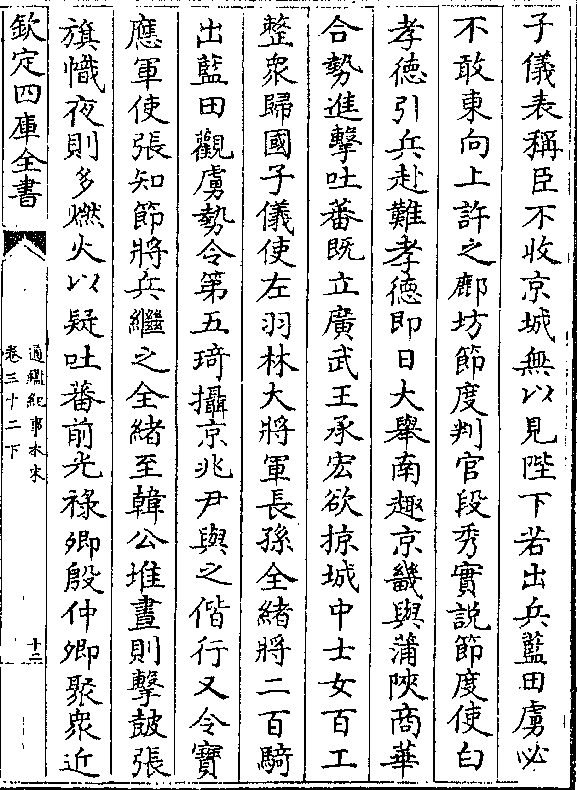 子儀表稱臣不收京城無以見陛下若出兵藍田虜必
不敢東向上許之鄜坊節度判官段秀實説節度使白
孝徳引兵赴難孝徳即日大舉南趣京畿與蒲陜商華
合勢進擊吐蕃既立廣武王承宏欲掠城中士女百工
整衆歸國子儀使左羽林大將軍長孫全緒將二百騎
出藍田觀虜勢令第五琦攝京兆尹與之偕行又令寶
應軍使張知節將兵繼之全緒至韓公堆晝則擊鼓張
旗幟夜則多燃火以疑吐蕃前光祿卿殷仲卿聚衆近
欽定四庫全書
通鑑紀事本末
卷三十二下
十二